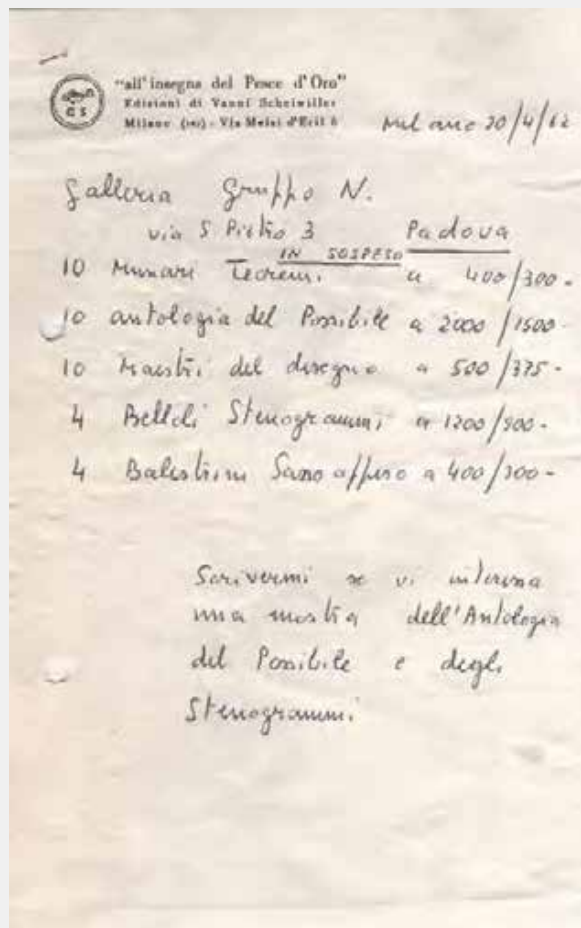 "all'insegna del Pesce d'Oro"
Edizioni di Vanni Scheiwiller
Milano (140) - Via Melzi d'Eril 6
Milano 20/4/62
Galleria Gruppo N.
via S Pietro 3 Padova
IN SOSPESO
10 Munari Teoremi a 400/300-
10 antologia del Possibile a 2000/1500-
10 Maestri del disegno a 500/375-
4 Belloli Stenogrammi a 1200/900-
4 Balestrini Sasso appeso a 400/300-
Scrivermi se vi interessa
una mostra dell'Antologia
del Possibile e degli
Stenogrammi